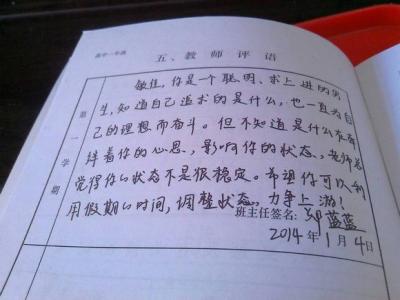 高中一年级
五、教师评语
第一学期
敏佳，你是一个聪明、求上进的男
生，知道自己追求的是什么，也一直为自
己的理想而奋斗。但不知道是什么在牵
绊着你的心思，影响你的状态，老师总
觉得你的状态不是很稳定。希望你可以利
用假期的时间，调整状态，力争上游！
班主任签名：郑蓝蓝
2014年1月4日